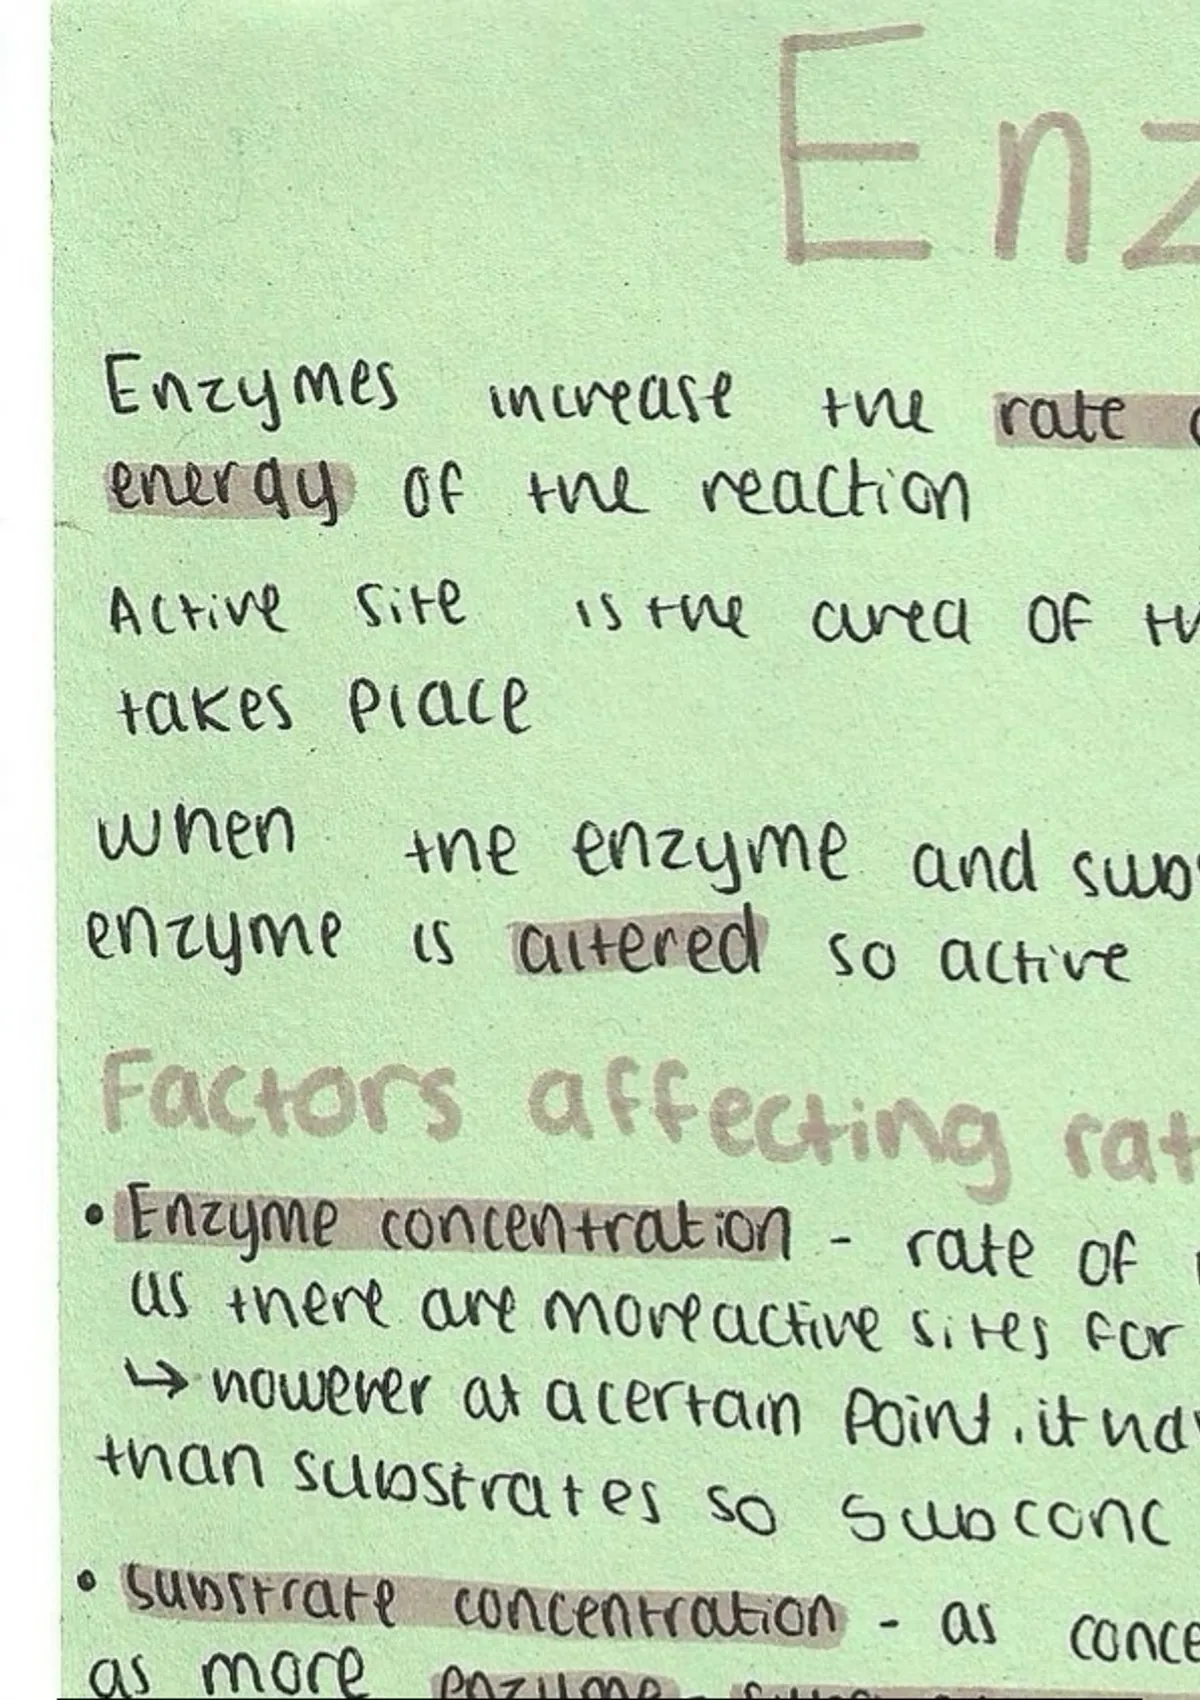 Enz
Enzymes increase the rate
energy of the reaction
Active site is the area of th
takes place
when the enzyme and subs
enzyme is altered so active
Factors affecting rat
• Enzyme concentration - rate of
as there are more active sites for
↳ however at a certain point, it ha
than substrates so sub conc
• substrate concentration - as conce
as more enzyme - subs